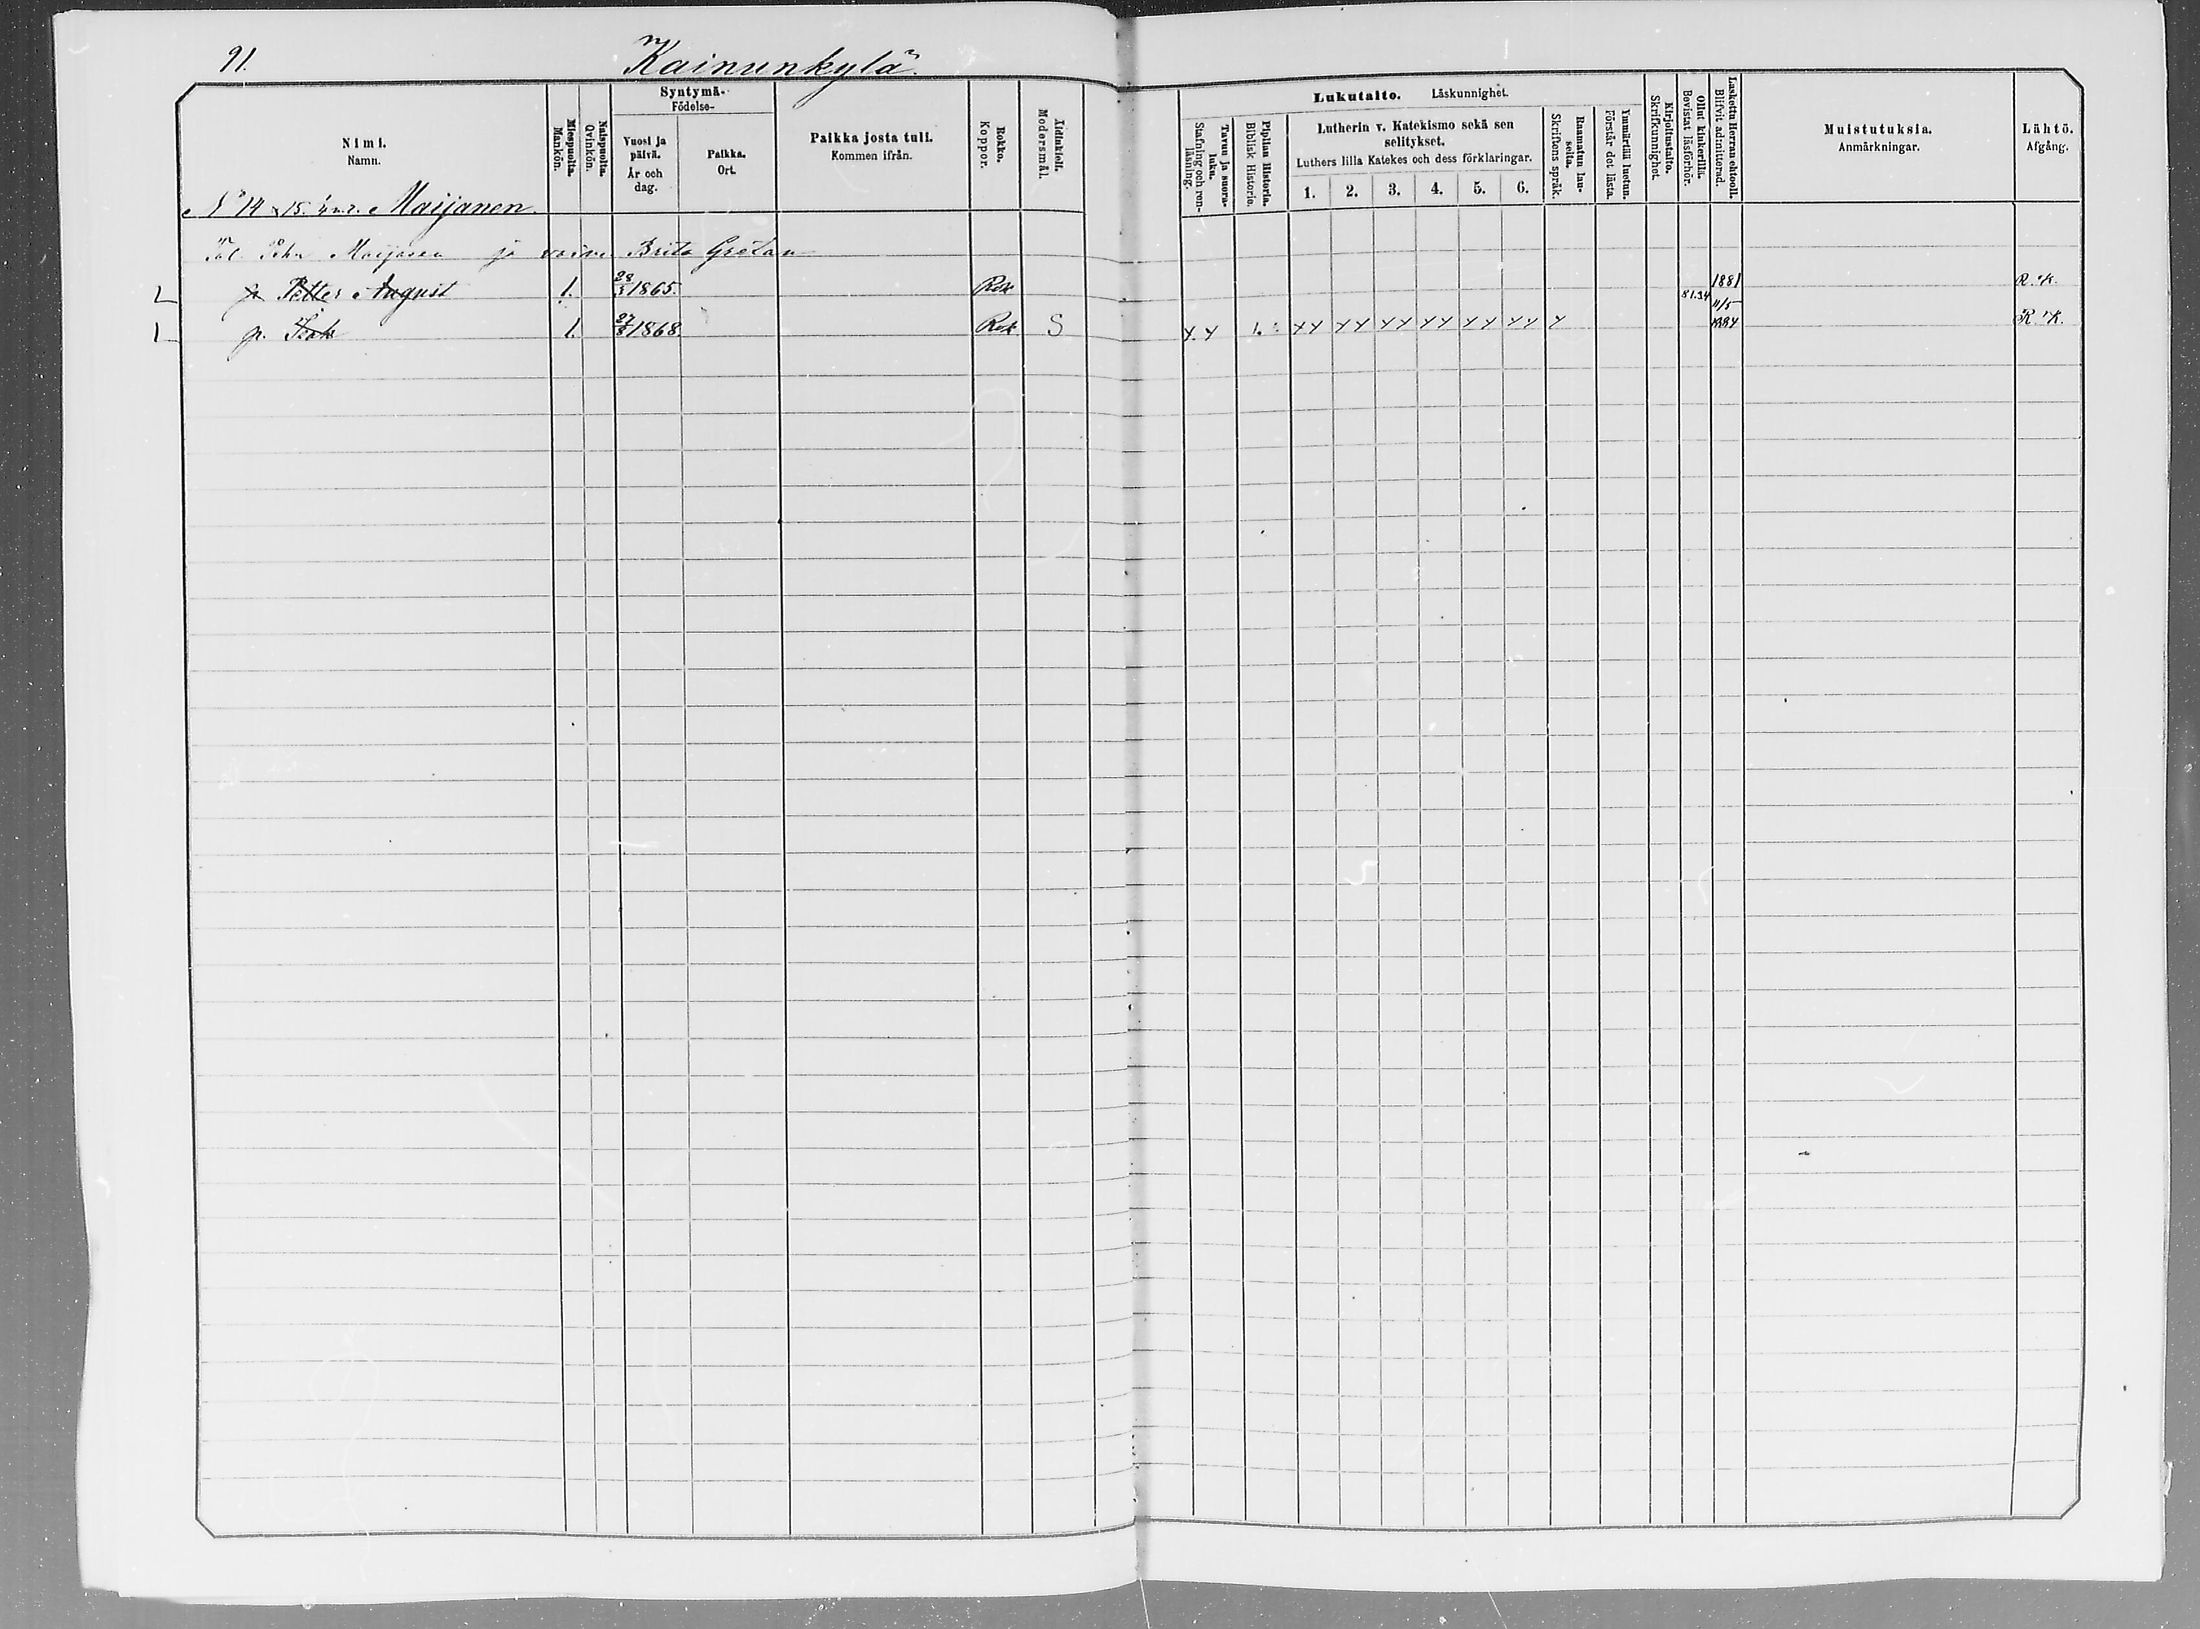 91.
Kainunkylä.
Nimi.
Namn.
Miespuolia.
Mankön.
Naispuolia.
Qvinkön.
Syntymä-
Födelse-
Vuosi ja
päivä.
År och
dag.
Paikka.
Ort.
Paikka josta tuli.
Kommen ifrån.
Rokko.
Koppor.
Äidinkieli.
Modersmål.
Lukutaito. Läskunnighet.
Tavuu ja suora-
luku.
Stafning och ren-
läsning.
Piplian Historia.
Biblisk Historie.
Lutherin v. Katekismo sekä sen
selitykset.
Luthers lilla Katekes och dess förklaringar.
1. 2. 3. 4. 5. 6.
Raamatun lau-
seita.
Skriftens språk.
Ymmärtää luetun.
Förstår det lästa.
Kirjoitustaito.
Skrifkunnighet.
Ollut kinkerillä.
Bevistat läsförhör.
Laskettu Herran ehtooll.
Blifvit admitterad.
Muistutuksia.
Anmärkningar.
Lähtö.
Afgång.
N:o 14 Maijanen.
Maijasen ja vaim. Brita Gretan
2 p. Petter August 1. 28/3 1865. Rok 81.34 1881 R.K.
1 p. 1. 27/8 1868. Rok S 11/5 1884 R.K.